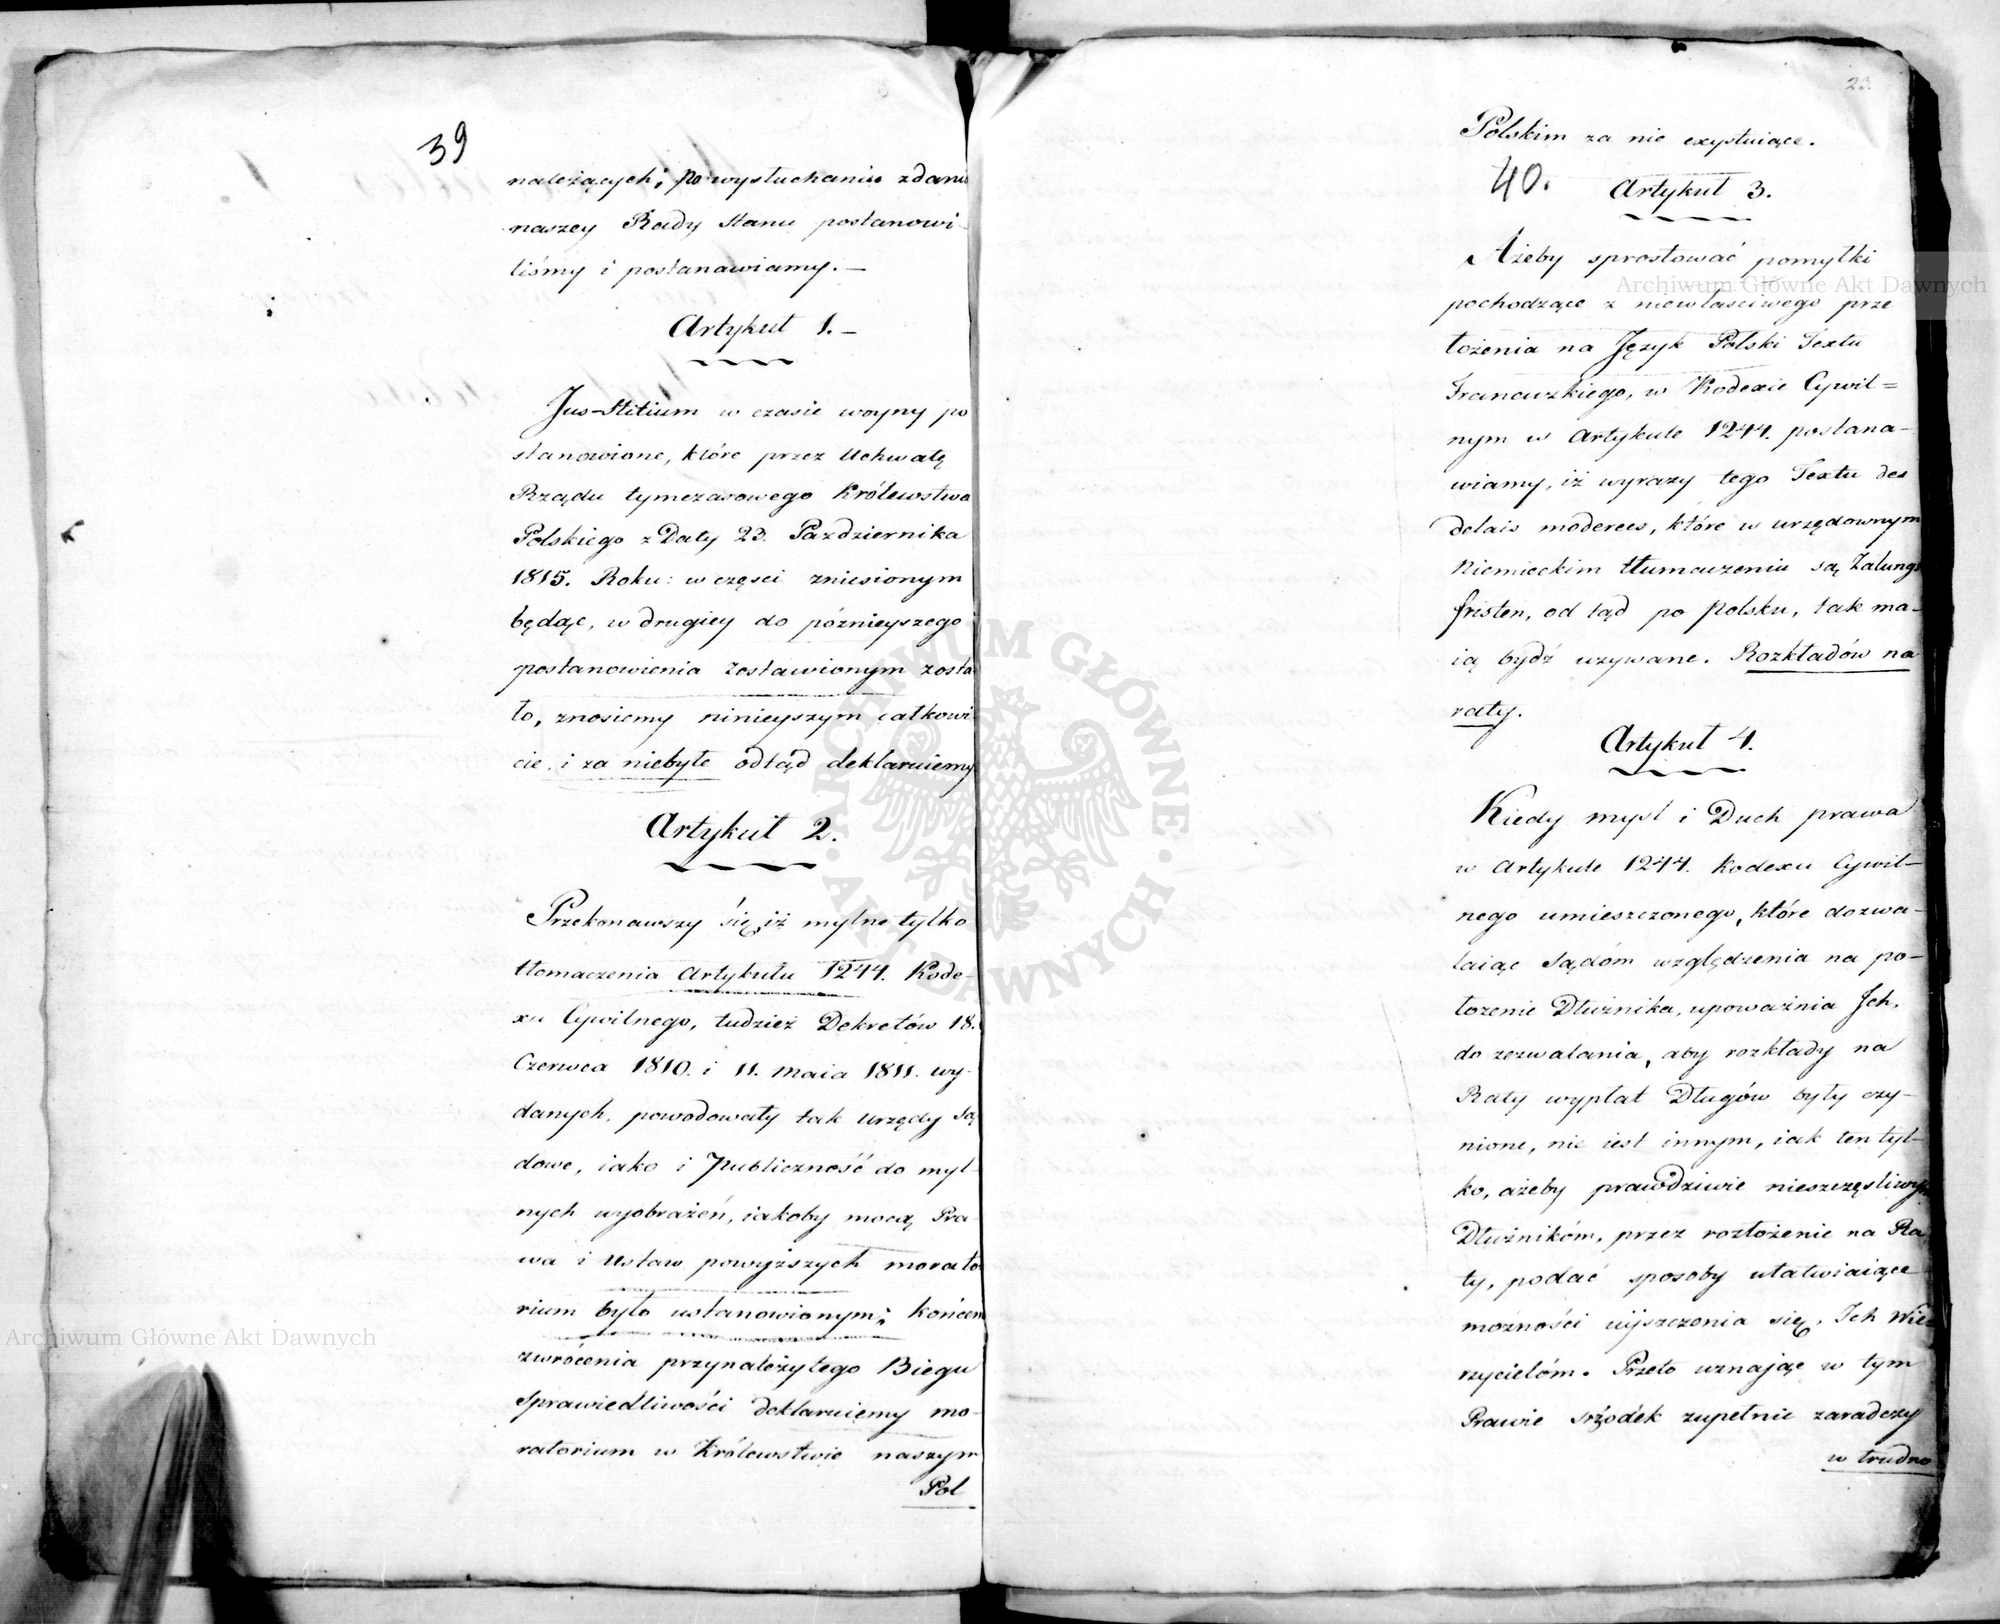 39
należących; po wysłuchaniu zdania
naszey Rady Stanu postanowi-
liśmy i postanawiamy. —
Artykuł 1. —
Jus-Stitium w czasie woyny po
stanowione, które przez Uchwałę
Rządu tymczasowego Królewstwa
Polskiego z Daty 23. Pazdziernika
1815. Roku: w części zniesionym
będąc, w drugiey do póznieyszego
postanowienia zostawionym zosta
ło, znosiemy ninieyszym całkowi
cie, i za niebyłe odtąd deklaruiemy
Artykuł 2.
Przekonawszy się, iż mylne tylko
tłomaczenia Artykułu 1244. Kode-
xu Cywilnego, tudzież Dekretów 18.
Czerwca 1810. i 11. Maia 1811. wy-
danych, powodowały tak urzędy Są
dowe, iako i Publiczność do myl-
nych wyobrażeń, iakoby mocą Pra-
wa i Ustaw powyższych morato
rium było ustanowionym; końcem
zwrócenia przynależytego Biegu
Sprawiedliwości deklaruiemy mo-
ratorium w Królewstwie naszym
Pol
23.
Polskim za nie exystuiące.
40.
Artykuł 3.
Ażeby sprostować pomyłki
pochodzące z niewłaściwego prze
łożenia na Język Polski Textu
Francuzkiego, w Kodexie Cywil=
nym w Artykule 1244. postana-
wiamy, iż wyrazy tego Textu des
delais moderees, które w urzędownym
Niemieckim tłumaczeniu są Zalungs
fristen, od tąd po Polsku, tak ma-
ią bydź uzywane. Rozkładów na
raty.
Artykuł 4.
Kiedy mysl i Duch prawa
w Artykule 1244. Kodexu Cywil-
nego umieszczonego, które dozwa-
laiąc Sądóm względzenia na po-
łozenie Dłużnika, upoważnia Ich,
do zezwalania, aby rozkłady na
Raty wypłat Długów były czy-
nione, nie iest innym, iak ten tyl-
ko, ażeby prawdziwie nieszczęśliwym
Dłużnikóm, przez rozłożenie na Ra
ty, podać sposoby ułatwiaiące
możności uiszczenia się, Ich Wie-
rzycielóm. Przeto uznaiąc w tym
Prawie srzodek zupełnie zaradczy
w trudno
Archiwum Główne Akt Dawnych
Archiwum Główne Akt Dawnych
ARCHIWUM GŁÓWNE AKT DAWNYCH